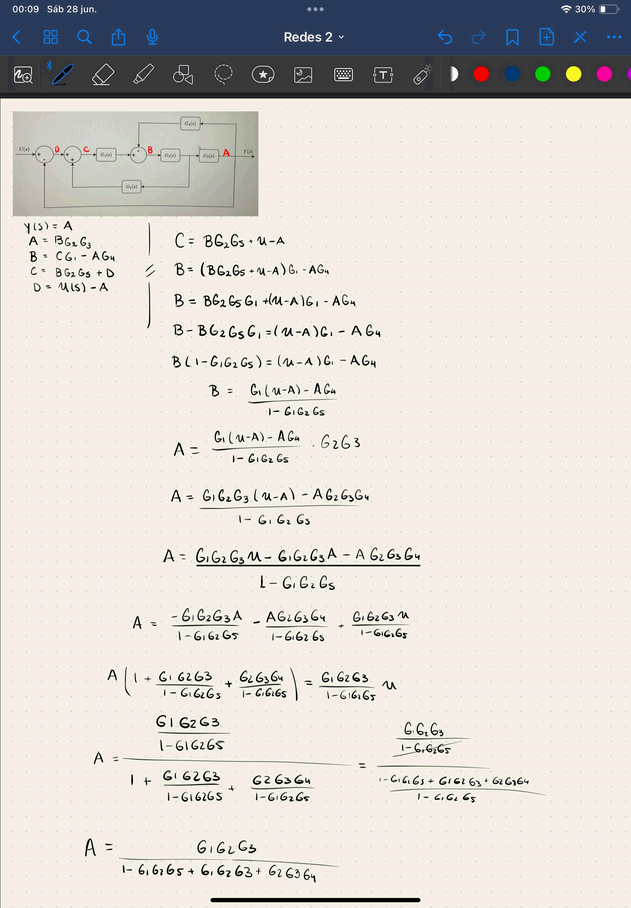 00:09 Sáb 28 jun.
30%
Redes 2
T
U(s)
D
C
G₁(s)
B
G₂(s)
G₃(s)
A
Y(s)
G₄(s)
G₅(s)
Y(s) = A
A = BG₂G₃
B = CG₁ - AG₄
C = BG₂G₅ + D
D = U(s) - A
C = BG₂G₅ + U - A
B = (BG₂G₅ + U - A)G₁ - AG₄
B = BG₂G₅G₁ + (U - A)G₁ - AG₄
B - BG₂G₅G₁ = (U - A)G₁ - AG₄
B(1 - G₁G₂G₅) = (U - A)G₁ - AG₄
B = G₁(U - A) - AG₄ / 1 - G₁G₂G₅
A = G₁(U - A) - AG₄ / 1 - G₁G₂G₅ · G₂G₃
A = G₁G₂G₃(U - A) - AG₂G₃G₄ / 1 - G₁G₂G₅
A = G₁G₂G₃U - G₁G₂G₃A - AG₂G₃G₄ / 1 - G₁G₂G₅
A = -G₁G₂G₃A / 1 - G₁G₂G₅ - AG₂G₃G₄ / 1 - G₁G₂G₅ + G₁G₂G₃U / 1 - G₁G₂G₅
A (1 + G₁G₂G₃ / 1 - G₁G₂G₅ + G₂G₃G₄ / 1 - G₁G₂G₅) = G₁G₂G₃ / 1 - G₁G₂G₅ U
A = G₁G₂G₃ / 1 - G₁G₂G₅ / 1 + G₁G₂G₃ / 1 - G₁G₂G₅ + G₂G₃G₄ / 1 - G₁G₂G₅ = G₁G₂G₃ / 1 - G₁G₂G₅ / 1 - G₁G₂G₅ + G₁G₂G₃ + G₂G₃G₄ / 1 - G₁G₂G₅
A = G₁G₂G₃ / 1 - G₁G₂G₅ + G₁G₂G₃ + G₂G₃G₄